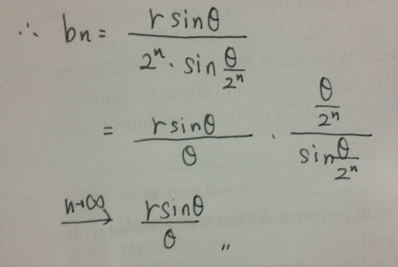 ∴ bn = r sinθ / (2ⁿ · sin θ/2ⁿ)
= r sinθ / θ · (θ/2ⁿ) / (sin θ/2ⁿ)
n→∞ ⟶ r sinθ / θ 〃